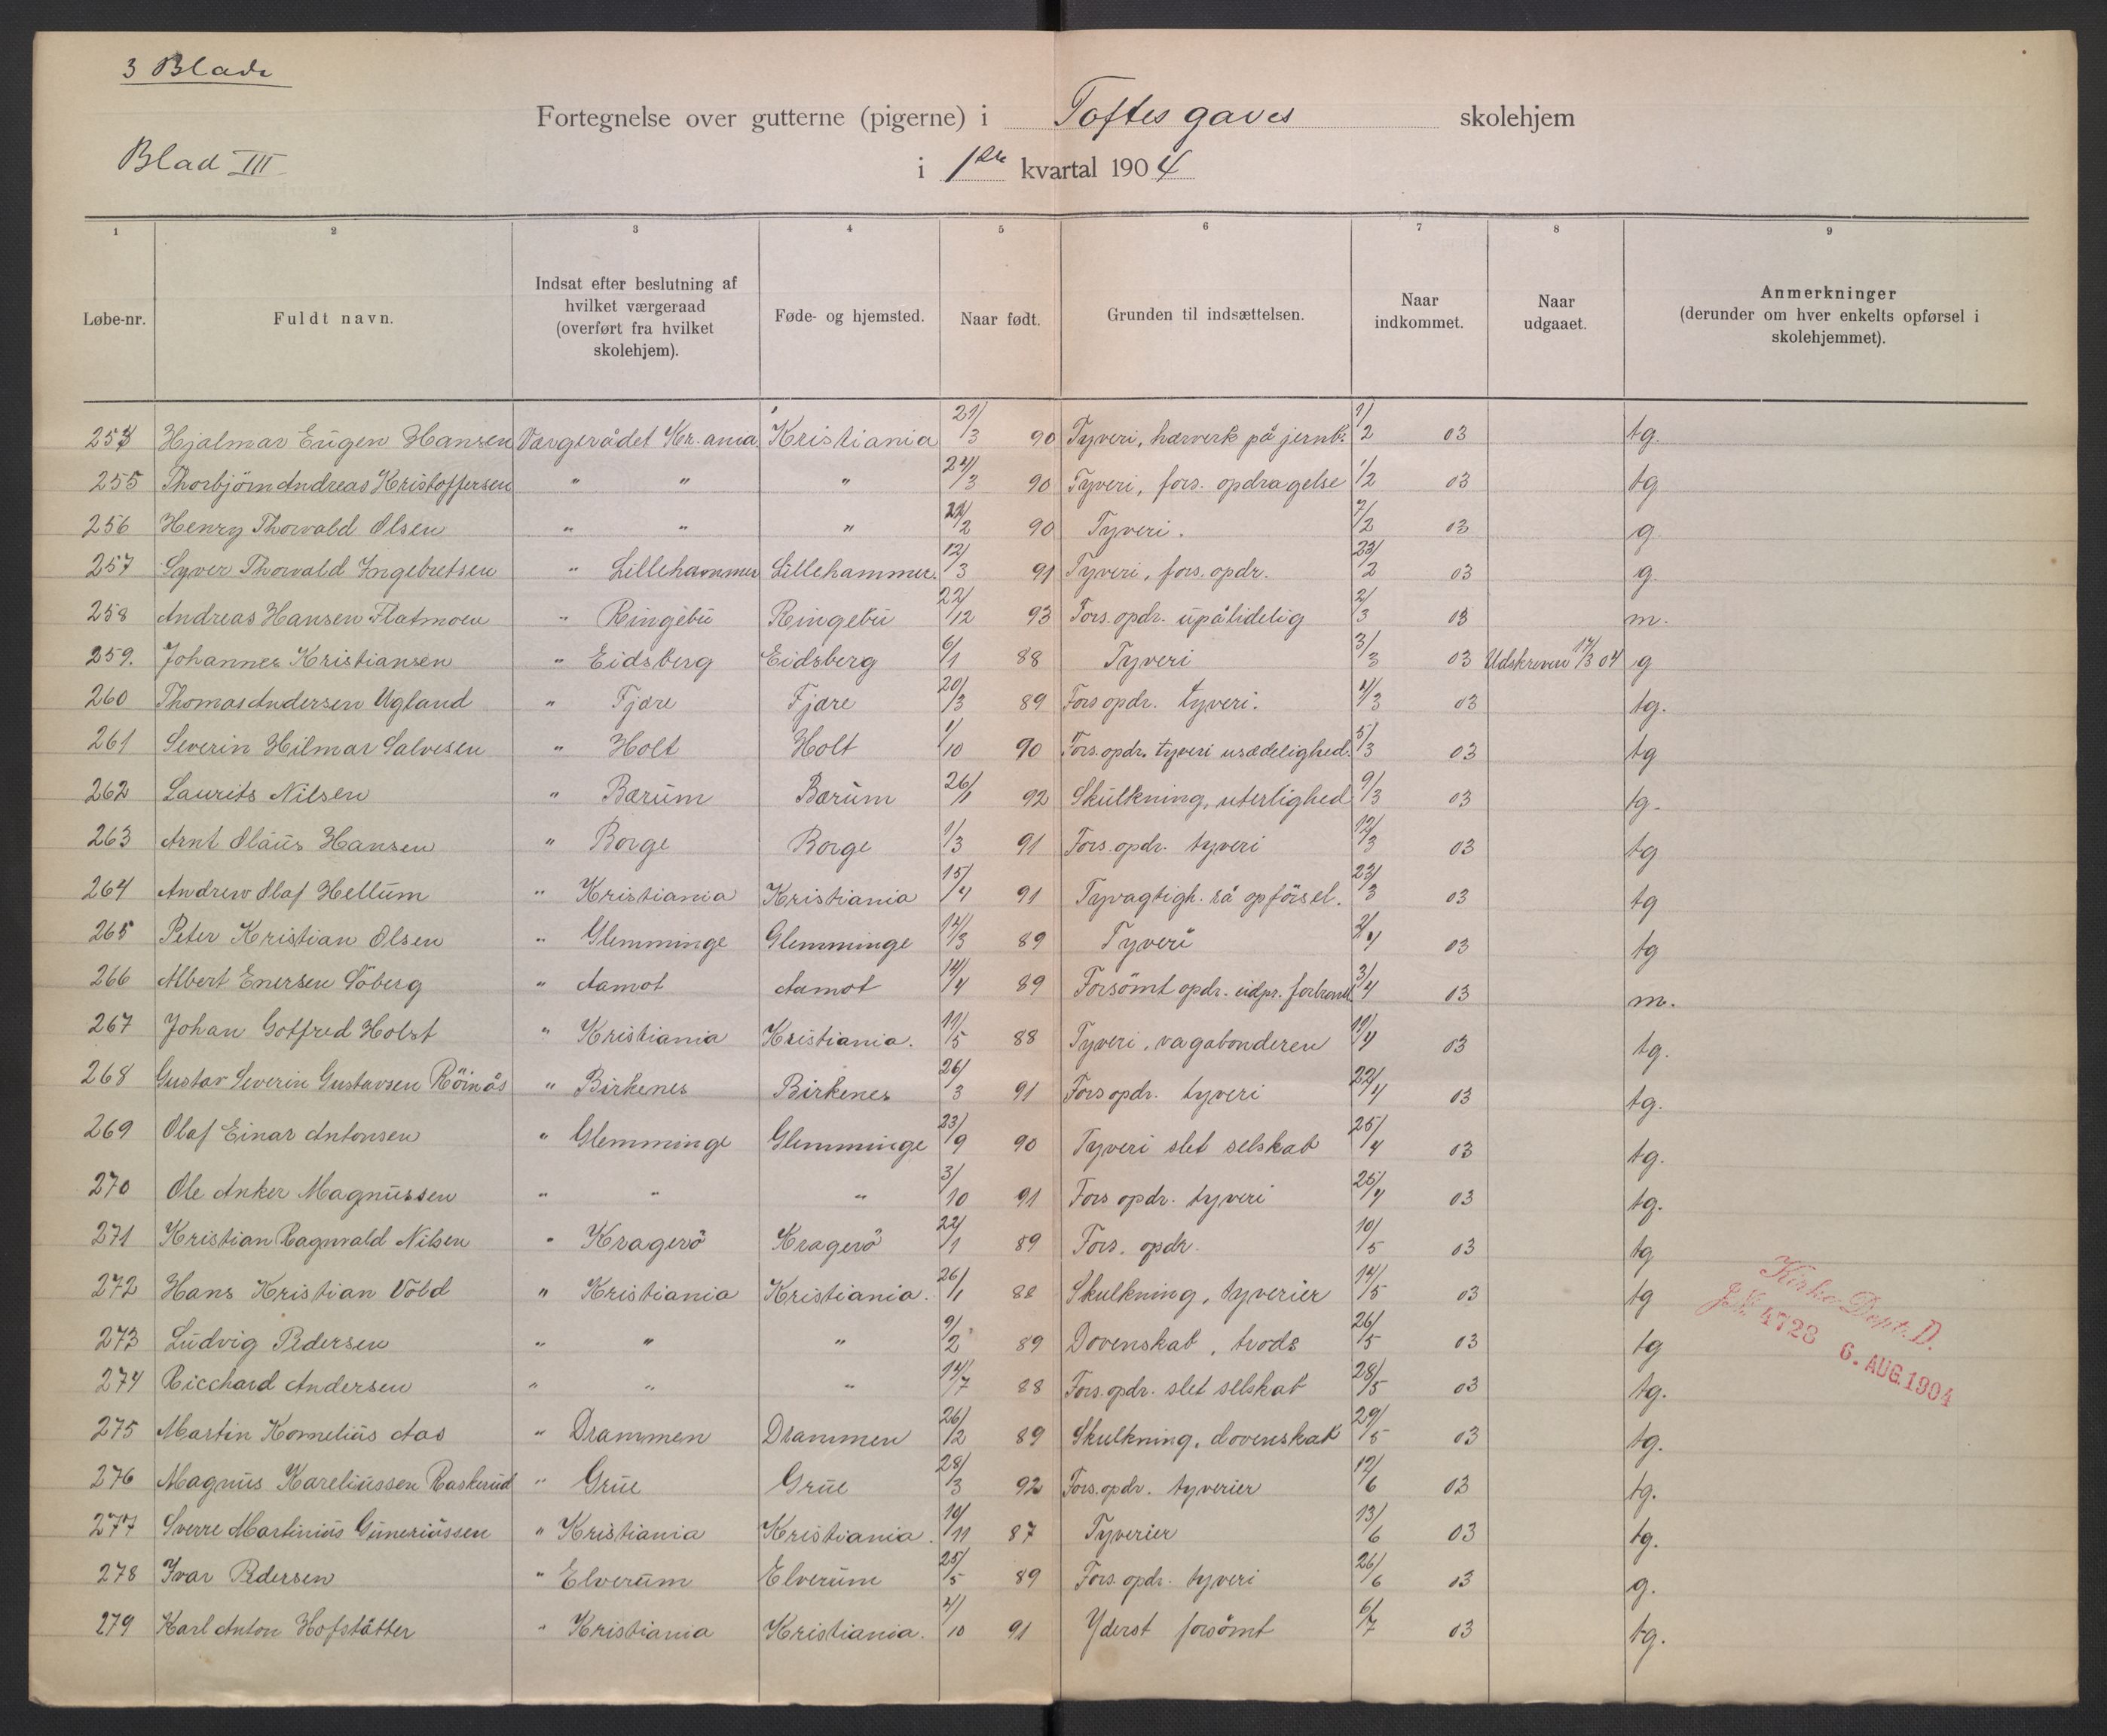 3 Blade
Fortegnelse over gutterne (pigerne) i Toftes gaves skolehjem
Blad III
i 1ste kvartal 1904
1 2 3 4 5 6 7 8 9
Løbe-nr. Fuldt navn. Indsat efter beslutning af hvilket værgeraad (overført fra hvilket skolehjem). Føde- og hjemsted. Naar født. Grunden til indsættelsen. Naar indkommet. Naar udgaaet. Anmerkninger (derunder om hver enkelts opførsel i skolehjemmet).
254 Hjalmar Eugen Hansen Værgerådet Kr.ania Kristiania 21/3 90 Tyveri, hærverk på jernb. 1/2 03 tg.
255 Thorbjörn Andreas Kristoffersen " " " 24/3 90 Tyveri, fors. opdragelse 1/2 03 tg
256 Henry Thorvald Olsen " " " /2 90 Tyveri. 7/2 03 g.
257 Syver Thorvald Ingebretsen " Lillehammer Lillehammer. 12/3 91 Tyveri, fors. opdr. 23/2 03 g.
258 Andreas Hansen Flatmoen " Ringebu Ringebu 22/12 93 Fors. opdr. upålidelig 2/3 03 m.
259. Johannes Kristiansen " Eidsberg Eidsberg 6/1 88 Tyveri 3/3 03 Udskreven 17/3 04 g
260 Thomas Andersen Ugland " Fjære Fjære 20/3 89 Fors opdr. tyveri. 4/3 03 tg.
261 Severin Hilmar Salvesen " Holt Holt 1/10 90 Fors. opdr. tyveri usædelighed. 5/3 03 tg
262 Laurits Nilsen " Bærum Bærum 26/1 92 Skulkning, uterlighed 9/3 03 tg.
263 Arnt Olaus Hansen " Borge Borge 1/3 91 Fors. opdr. tyveri 12/3 03 tg
264 Andrew Olaf Hellum " Kristiania Kristiania 15/4 91 Tyvagtigh. rå opförsel. 23/3 03 tg
265 Peter Kristian Olsen " Glemminge Glemminge 14/3 89 Tyveri 2/4 03 tg
266 Albert Enersen Söberg " Aamot Aamot 14/4 89 Forsömt opdr. 3/4 03 m.
267 Johan Gotfred Holst " Kristiania Kristiania. 11/5 88 Tyveri, vagabonderen 17/4 03 tg.
268 Gustav Severin Gustavsen Röinås " Birkenes Birkenes 26/3 91 Fors opdr. tyveri 22/4 03 tg.
269 Olaf Einar Antonsen " Glemminge Glemminge 23/9 90 Tyveri slet selskab 25/4 03 tg.
270 Ole Anker Magnussen " " " 3/10 91 Fors opdr. tyveri 25/4 03 tg.
271 Kristian Ragnvald Nilsen " Kragerö Kragerö 22/1 89 Fors. opdr. 10/5 03 tg
272 Hans Kristian Vold " Kristiania Kristiania. 26/1 88 Skulkning, tyverier 14/5 03 tg
273 Ludvig Pedersen " " " 9/2 89 Dovenskab, trods 26/5 03 tg
274 Ricchard Andersen " " " 14/7 88 Fors. opdr. slet selskab 28/5 03 tg.
275 Martin Kornelius Aas " Drammen Drammen 26/2 89 Skulkning, dovenskab 29/5 03 tg.
276 Magnus Kareliussen Raskerud " Grue Grue 28/3 92 Fors. opdr. tyverier 12/6 03 tg.
277 Sverre Martinius Guneriussen " Kristiania Kristiania. 19/11 87 Tyverier 13/6 03 tg.
278 Ivar Pedersen " Elverum Elverum 25/5 89 Fors. opdr. tyveri 26/6 03 g.
279 Karl Anton Hofstätter " Kristiania Kristiania. 4/10 91 Yderst forsömt 6/7 03 tg.
Kirke-Dept. D.
J. N. 4723 6. AUG. 1904